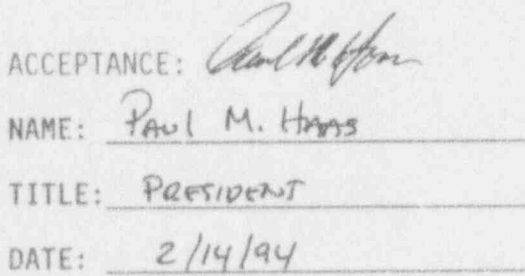 ACCEPTANCE: Paul M Haas
NAME: PAUL M. HAAS
TITLE: PRESIDENT
DATE: 2/14/94